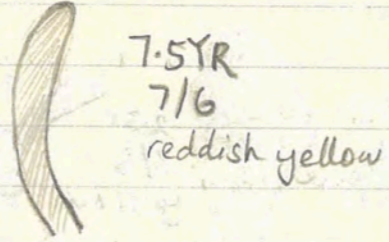 7.5YR
7/6
reddish yellow